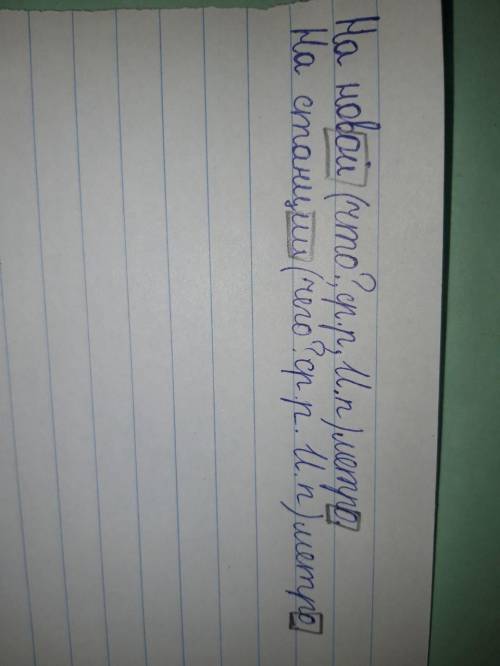 На новой (что?, ср.р, И.п) метро.
На станции (чего? ср.р. И.п) метро.